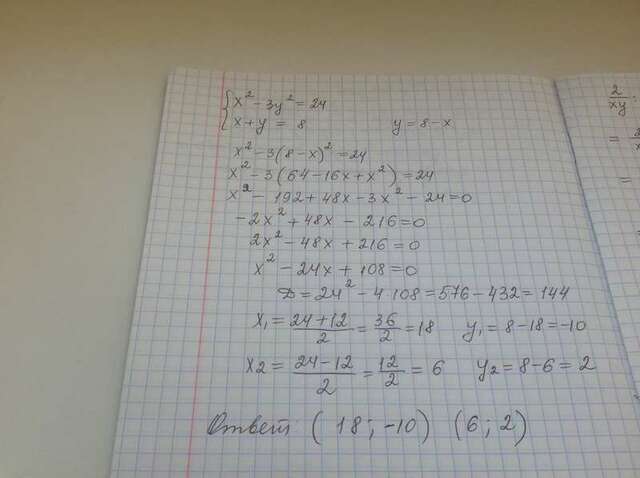 { x² - 3y² = 24
x + y = 8 y = 8 - x
x² - 3(8 - x)² = 24
x² - 3(64 - 16x + x²) = 24
x² - 192 + 48x - 3x² - 24 = 0
-2x² + 48x - 216 = 0
2x² - 48x + 216 = 0
x² - 24x + 108 = 0
D = 24² - 4·108 = 576 - 432 = 144
x₁ = (24+12)/2 = 36/2 = 18 y₁ = 8 - 18 = -10
x₂ = (24-12)/2 = 12/2 = 6 y₂ = 8 - 6 = 2
Ответ: (18; -10) (6; 2)
2/xy